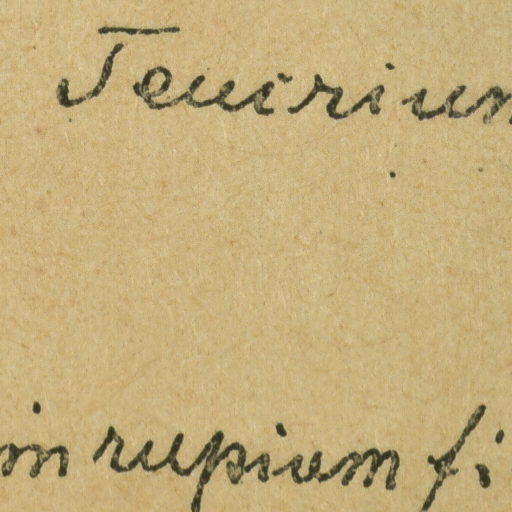 Teucrium
in rupium fi